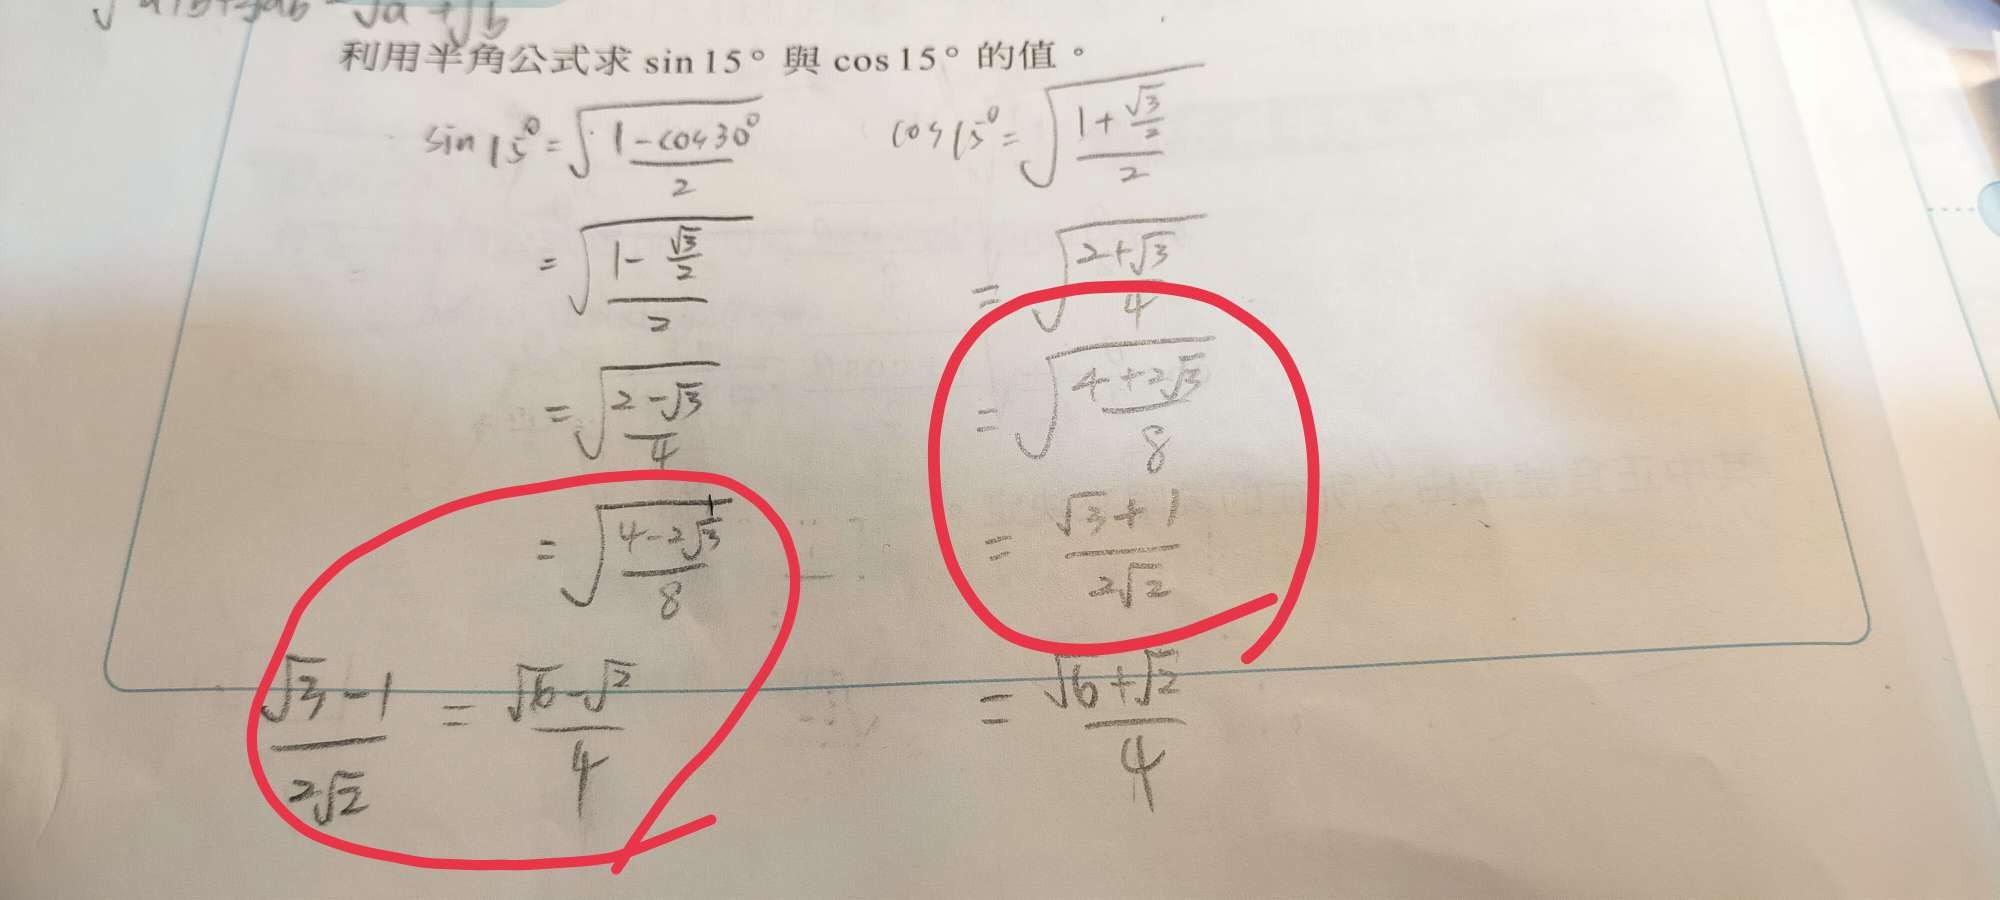 √a+√b
利用半角公式求 sin 15° 與 cos 15° 的值。
sin 15° = √((1-cos30°)/2)
= √((1-√3/2)/2)
= √((2-√3)/4)
= √((4-2√3)/8)
(√3-1)/(2√2) = (√6-√2)/4
cos 15° = √((1+√3/2)/2)
= √((2+√3)/4)
= √((4+2√3)/8)
= (√3+1)/(2√2)
= (√6+√2)/4